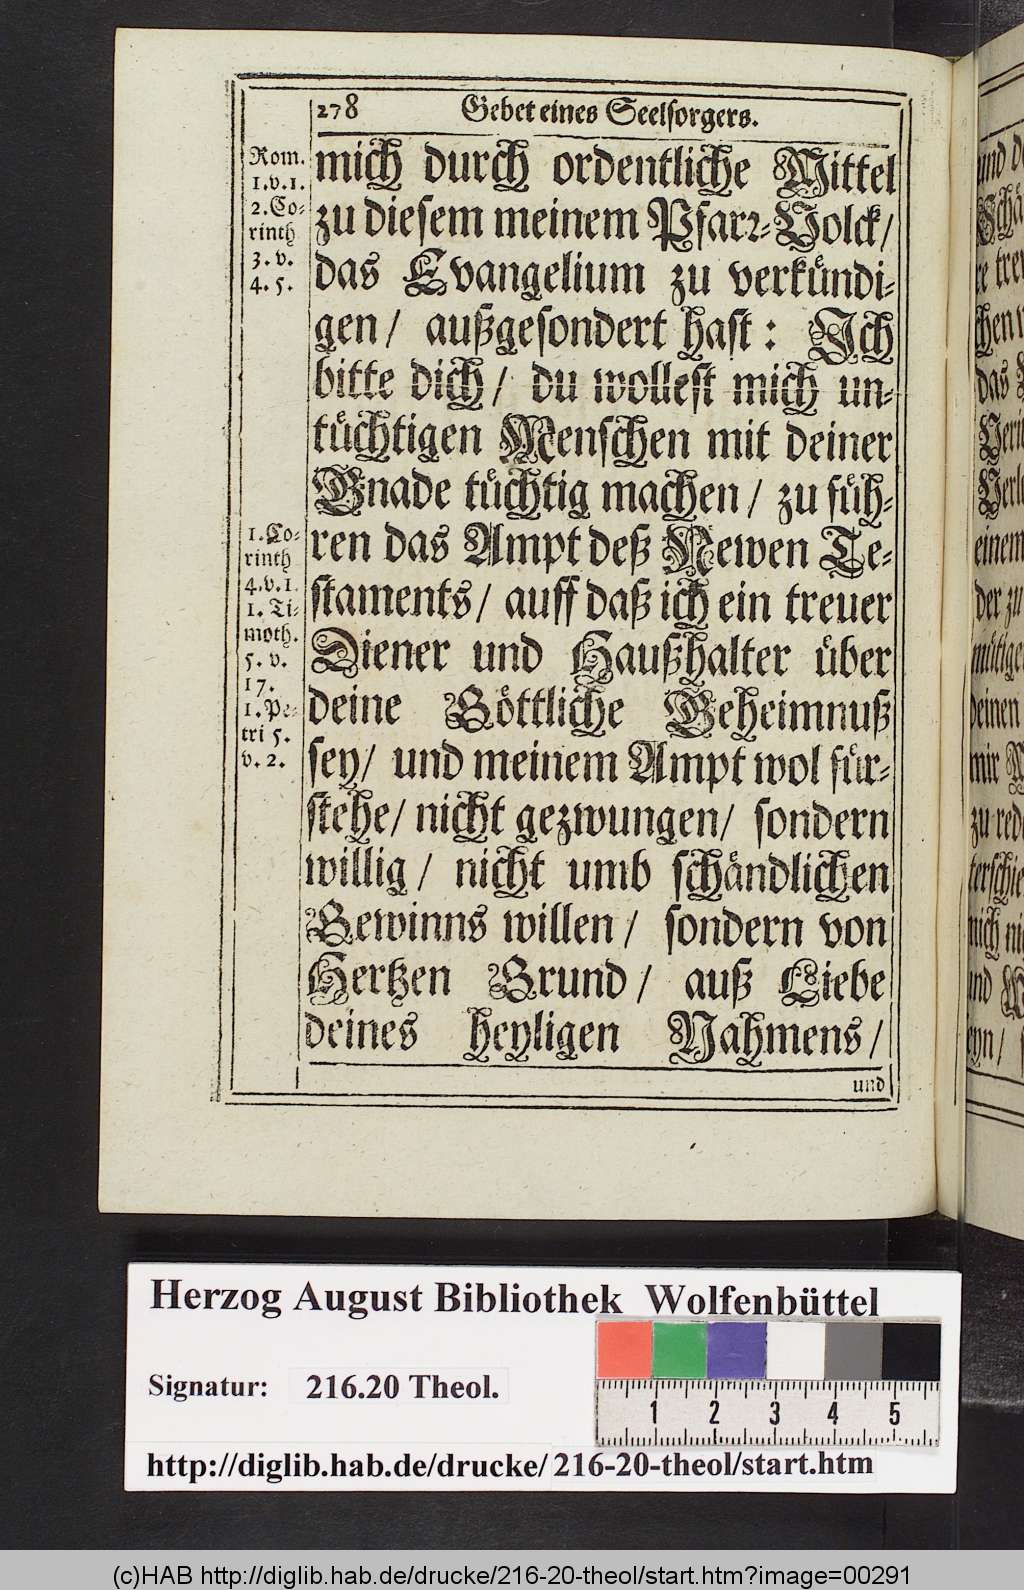 278 Gebet eines Seelsorgers.
Rom.
1.v.1.
2.Co-
rinth
3. v.
4. 5.
mich durch ordentliche Mittel
zu diesem meinem Pfarr-Volck/
das Evangelium zu verkündi-
gen/ außgesondert hast: Ich
bitte dich/ du wollest mich un-
tüchtigen Menschen mit deiner
Gnade tüchtig machen/ zu füh-
1.Co-
rinth
4.v.1.
1. Ti-
moth.
5. v.
17.
1.Pe-
tri 5.
v. 2.
ren das Ampt deß Newen Te-
staments/ auff daß ich ein treuer
Diener und Haußhalter über
deine Göttliche Geheimnuß
sey/ und meinem Ampt wol für-
stehe/ nicht gezwungen/ sondern
willig/ nicht umb schändlichen
Gewinns willen/ sondern von
Hertzen Grund/ auß Liebe
deines heyligen Nahmens/
und
Herzog August Bibliothek Wolfenbüttel
Signatur: 216.20 Theol.
1 2 3 4 5
http://diglib.hab.de/drucke/216-20-theol/start.htm
(c)HAB http://diglib.hab.de/drucke/216-20-theol/start.htm?image=00291